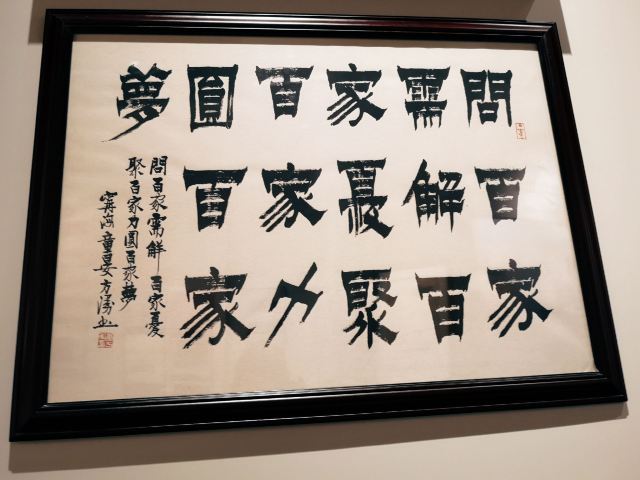 問百家
需解百
家憂聚
百家力
圓百家
夢
問百家需解百家憂
聚百家力圓百家夢
童晏方